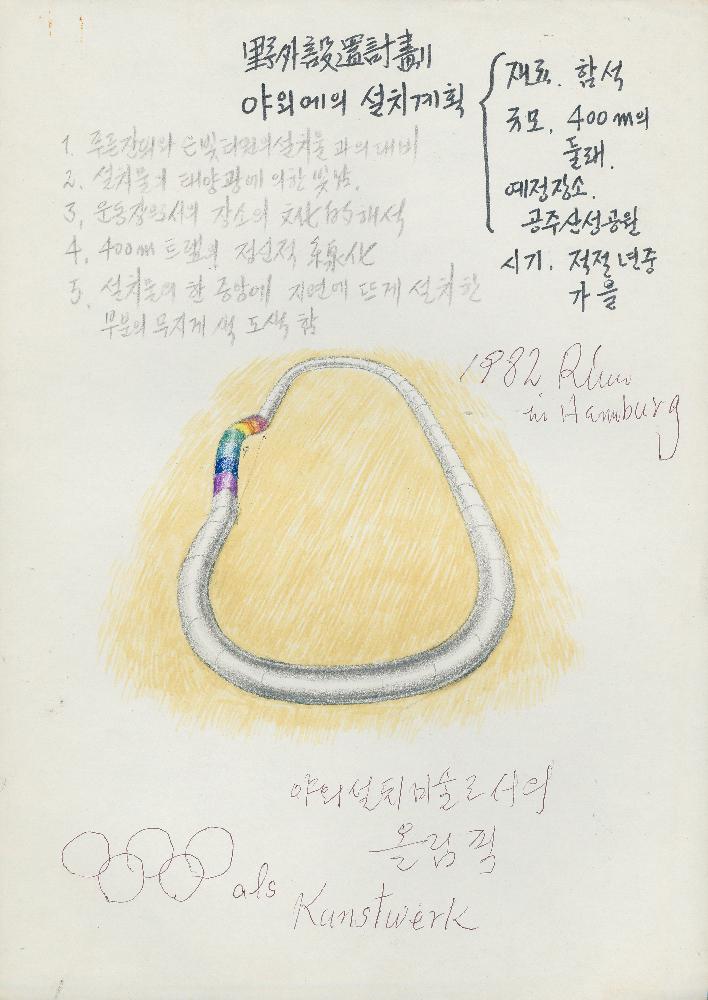 野外設置計劃
야외에의 설치계획
재료. 함석
규모. 400m의
둘래.
예정장소.
공주산성공원
시기. 적절년중
가을
1. 푸른잔디와 은빛 설치물과의 대비
2. 설치물의 태양광에 의한 빛남.
3. 운동장으로서의 장소의 文化的 해석
4. 400m 트랙의 線化
5. 설치물의 한 중앙에 지면에 뜨게 설치한
부분의 무지개색 도색함
1982 Rhee
in Hamburg
야외설치미술로서의
올림픽
als
Kunstwerk